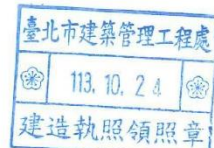 臺北市建築管理工程處
113.10.24
建造執照領照章